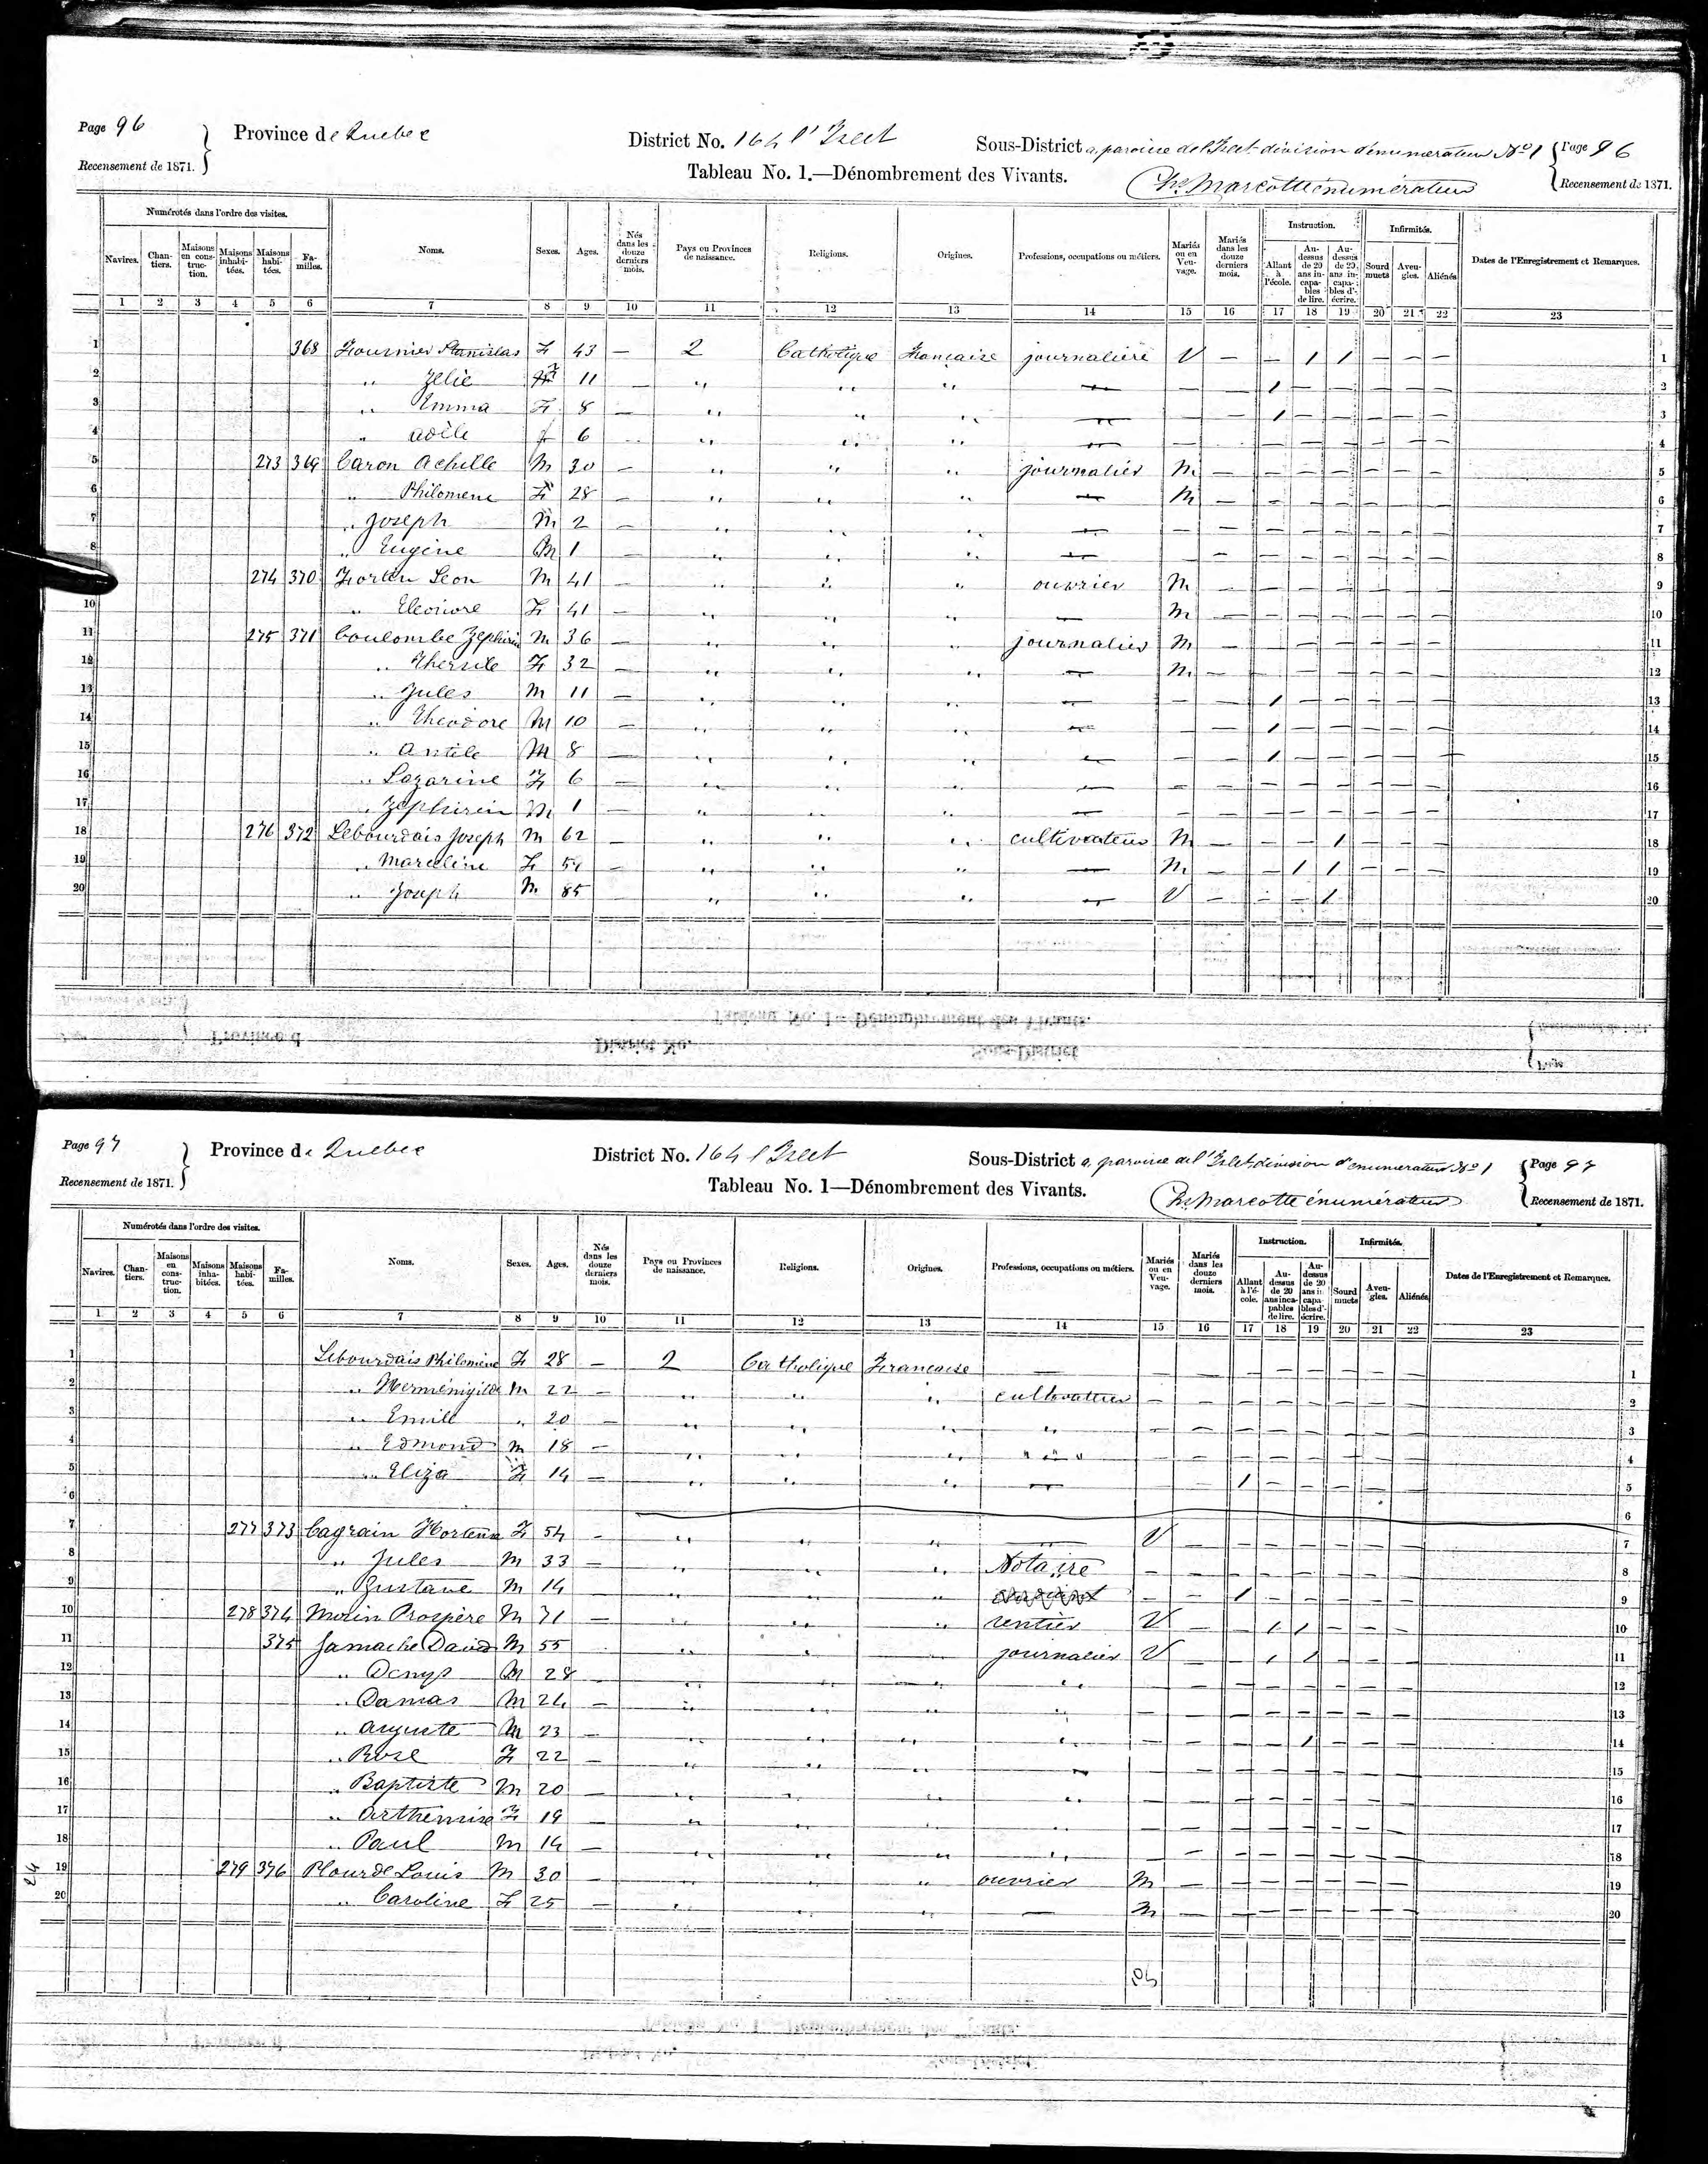 Page 96
Recensement de 1871.
Province de Quebec
District No. 164 l'Islet
Sous-District a, paroisse de l'Islet division d'enumerateur No 1
Page 96
Recensement de 1871.
Tableau No. 1.—Dénombrement des Vivants.
Chs Marcotte énumérateur
Numérotés dans l'ordre des visites. Instruction. Infirmités.
Navires. Chantiers. Maisons en construction. Maisons inhabitées. Maisons habitées. Familles. Noms. Sexes. Ages. Nés dans les douze derniers mois. Pays ou Provinces de naissance. Religions. Origines. Professions, occupations ou métiers. Mariés ou en Veuvage. Mariés dans les douze derniers mois. Allant à l'école. Au-dessus de 20 ans incapables de lire. Au-dessus de 20 ans incapables d'écrire. Sourd muets Aveugles. Aliénés Dates de l'Enregistrement et Remarques.
1 2 3 4 5 6 7 8 9 10 11 12 13 14 15 16 17 18 19 20 21 22 23
1 368 Fournier Stanislas F 43 — 2 Catholique Francaise journalière V — — 1 1 — — — 1
2 " Zelie F 11 — " " " — — — 1 — — — — — 2
3 " Emma F 8 — " " " — — — 1 — — — — — 3
4 " Adèle f 6 — " " " — — — — — — — — — 4
5 273 369 Caron Achille M 30 — " " " journalier M — — — — — — — 5
6 " Philomene F 28 — " " " — M — — — — — — — 6
7 " Joseph M 2 — " " " — — — — — — — — — 7
8 " Eugène M 1 — " " " — — — — — — — — — 8
9 274 370 Fortin Leon M 41 — " " " ouvrier M — — — — — — — 9
10 " Eleonore F 41 — " " " — M — — — — — — — 10
11 275 371 Coulombe Zephirin M 36 — " " " journalier M — — — — — — — 11
12 " Thersile F 32 — " " " — M — — — — — — — 12
13 " Jules M 11 — " " " — — — 1 — — — — — 13
14 " Theodore M 10 — " " " — — — 1 — — — — — 14
15 " M 8 — " " " — — — 1 — — — — — 15
16 " Lazarine F 6 — " " " — — — — — — — — — 16
17 " Zephirin M 1 — " " " — — — — — — — — — 17
18 276 372 Lebourdais Joseph M 62 — " " " cultivateur M — — — 1 — — — 18
19 " Marceline F 54 — " " " — M — — 1 1 — — — 19
20 " Joseph M 85 " " " — V — — — 1 — — — 20
Page 97
Recensement de 1871.
Province de Quebec
District No. 164 l'Islet
Sous-District a, paroisse de l'Islet division d'enumerateur No 1
Page 97
Recensement de 1871.
Tableau No. 1—Dénombrement des Vivants.
Chs Marcotte énumérateur
Numérotés dans l'ordre des visites. Instruction. Infirmités.
Navires. Chantiers. Maisons en construction. Maisons inhabitées. Maisons habitées. Familles. Noms. Sexes. Ages. Nés dans les douze derniers mois. Pays ou Provinces de naissance. Religions. Origines. Professions, occupations ou métiers. Mariés ou en Veuvage. Mariés dans les douze derniers mois. Allant à l'école. Au-dessus de 20 ans incapables de lire. Au-dessus de 20 ans incapables d'écrire. Sourd muets Aveugles. Aliénés Dates de l'Enregistrement et Remarques.
1 2 3 4 5 6 7 8 9 10 11 12 13 14 15 16 17 18 19 20 21 22 23
1 Lebourdais Philomène F 28 — 2 Catholique Francaise — — — — — — — 1
2 " Herménigilde M 22 — " " " cultivateur — — — — — — — — 2
3 " Emile " 20 — " " " " — — — — — — — — 3
4 " Edmond M 18 — " " " " — — — — — — — — 4
5 " Eliza F 14 — " " " — — — 1 — — — — — 5
6 6
7 277 373 Cagrain Hortense F 54 — " " " — V — — — — — — — 7
8 " Jules M 33 — " " " Notaire — — — — — — — — 8
9 " Gustave M 14 — " " " — — 1 — — — — — 9
10 278 374 Morin Prospère M 71 — " " " rentier V — — 1 1 — — — 10
11 375 Jamache David M 55 " " " journalier V — — 1 1 — — — 11
12 " Denys M 28 — " " " " — — — — — — — — 12
13 " Damas M 24 — " " " " — — — — — — — — 13
14 " Auguste M 23 — " " " " — — — — 1 — — — 14
15 " Rose F 22 — " " " — — — — — — — — — 15
16 " Baptiste M 20 — " " " " — — — — — — — — 16
17 " Arthemise F 19 — " " " " — — — — — — — — 17
18 " Paul M 14 — " " " " — — — — — — — — 18
19 279 376 Plourde Louis M 30 — " " " ouvrier M — — — — — — — 19
20 " Caroline F 25 — " " " — M — — — — — — — 20
24